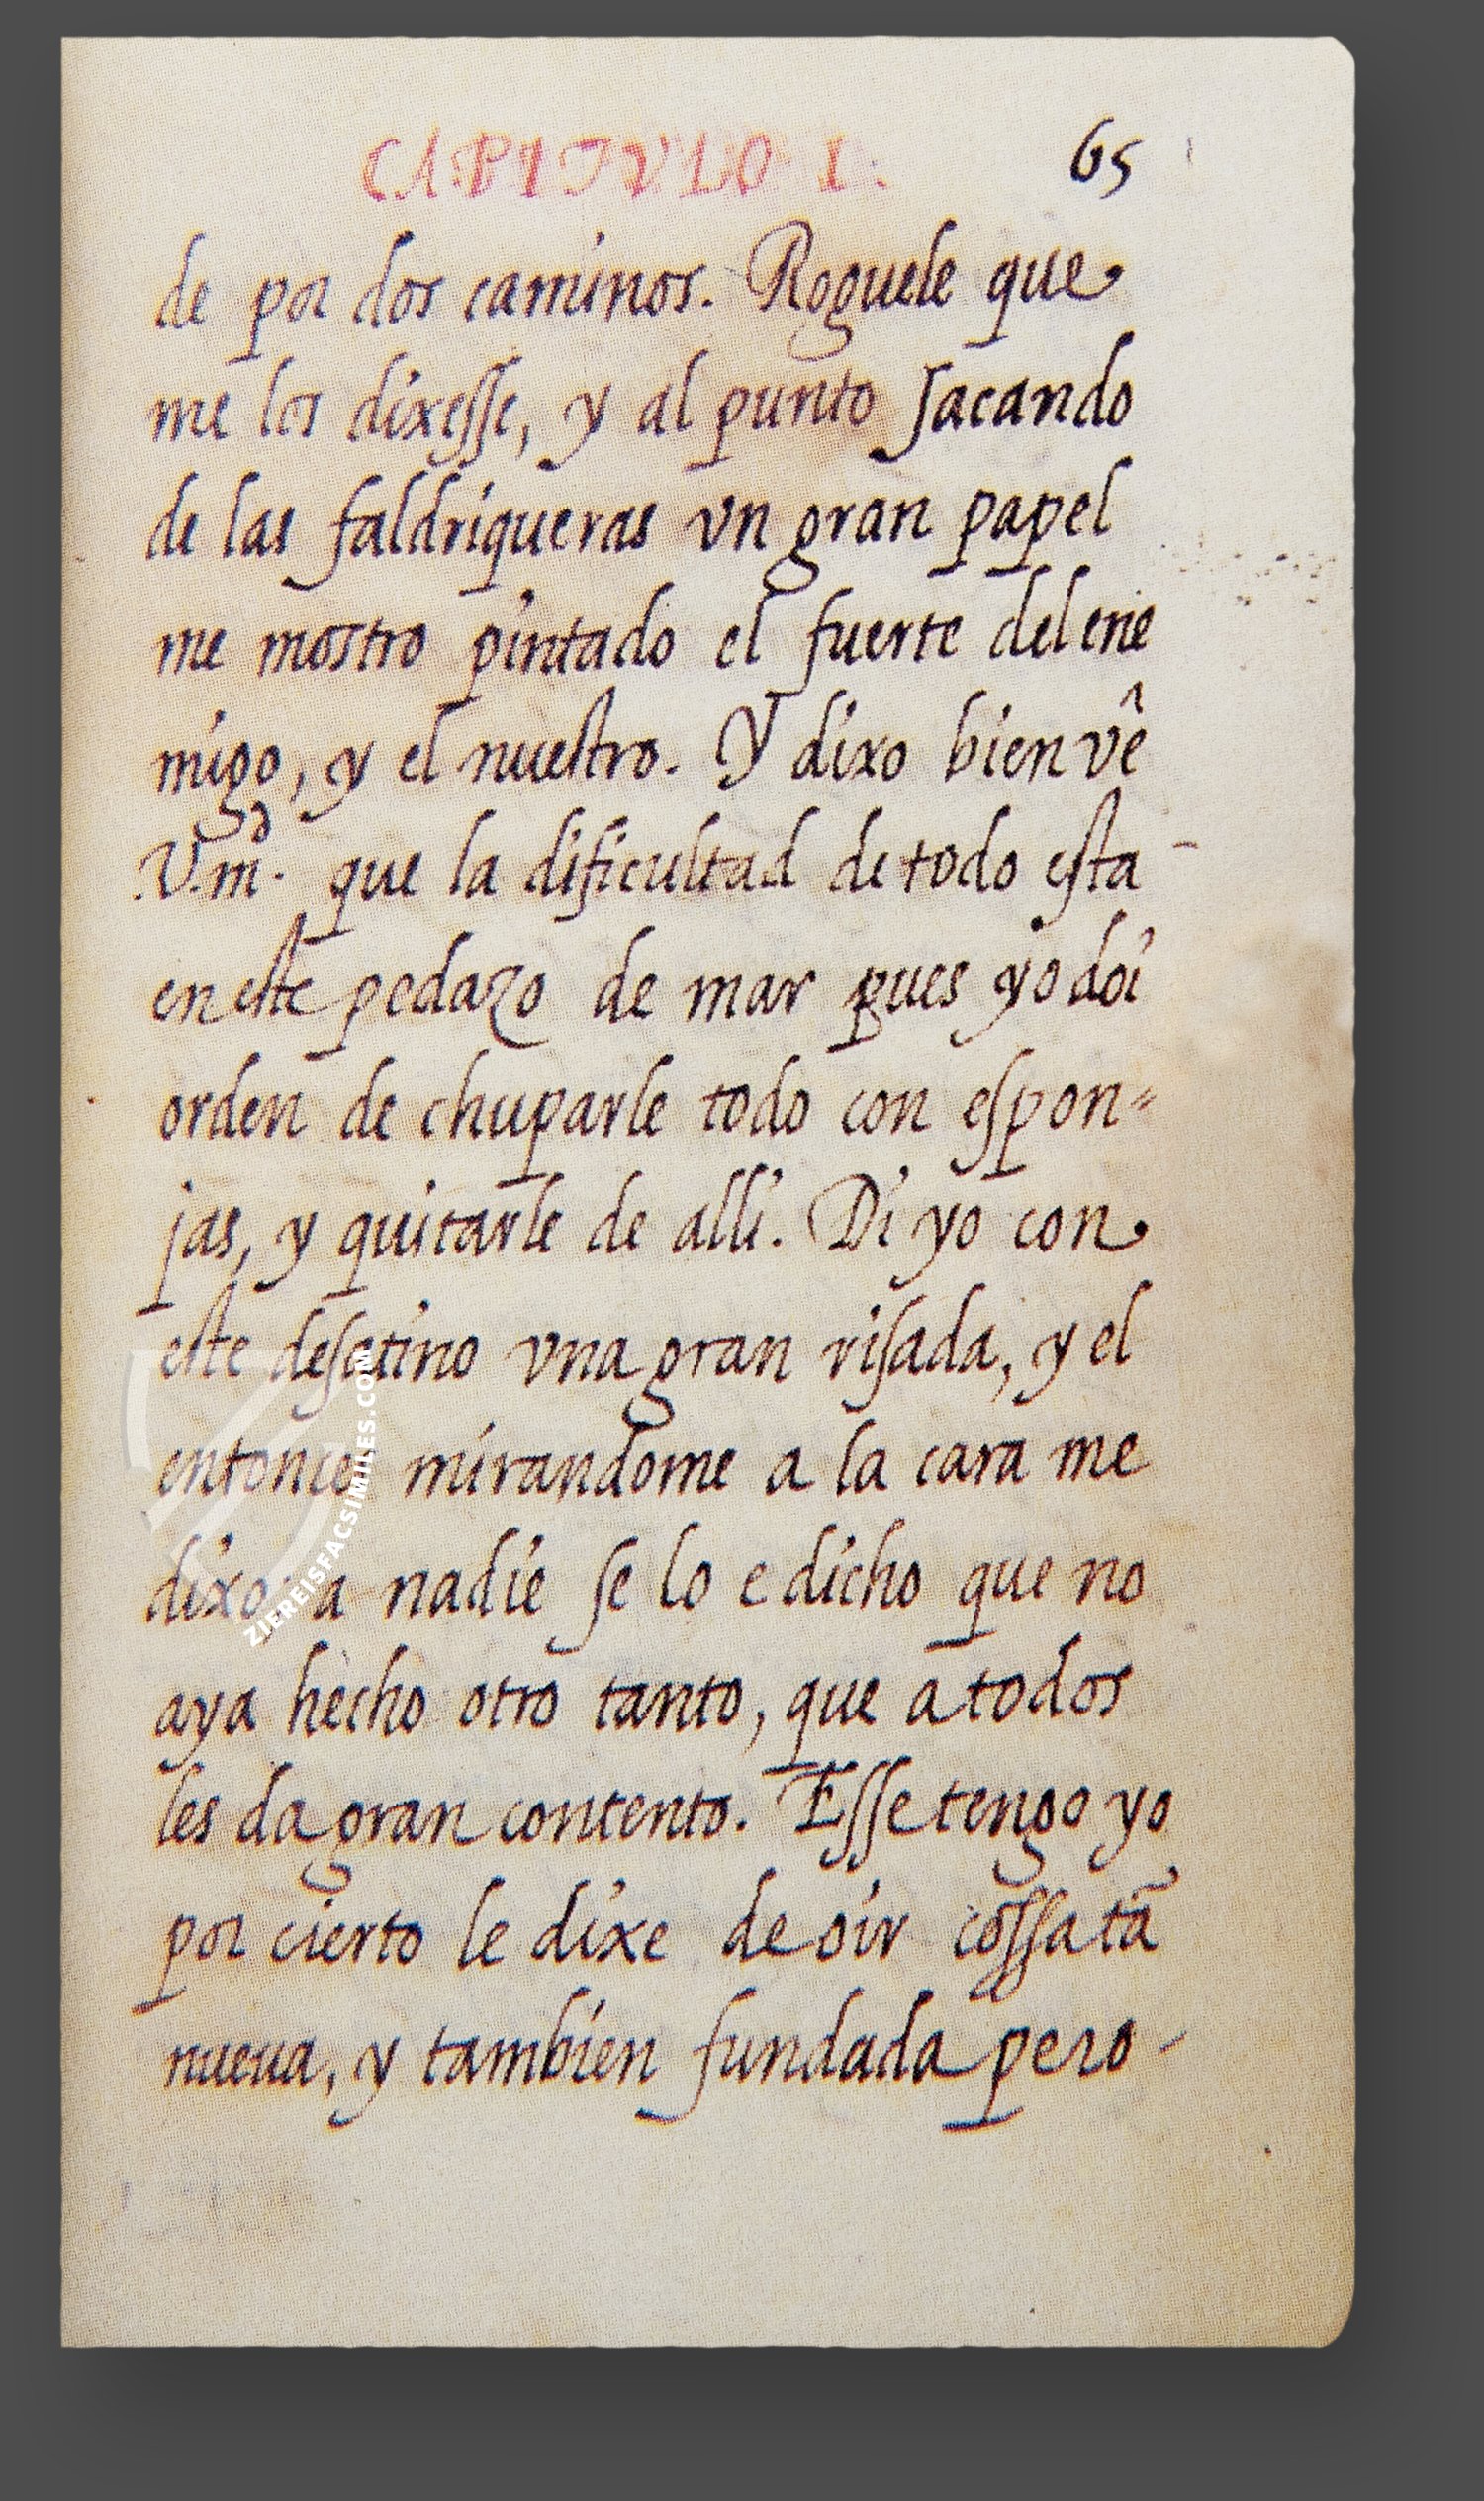 CAPITVLO I. 65
de por dos caminos. Roguele que
me los dixesse, y al punto sacando
de las faldriqueras vn gran papel
me mostro pintado el fuerte del ene
migo, y el nuestro. Y dixo bien vê
V.md. que la dificultad de todo esta
en este pedazo de mar pues yo doi
orden de chuparle todo con espon=
jas, y quitarle de alli. Di yo con
este desatino vna gran risada, y el
entonces mirandome a la cara me
dixo; a nadie se lo e dicho que no
aya hecho otro tanto, que a todos
les da gran contento. Esse tengo yo
por cierto le dixe de oir cossa tã
nueua, y tambien fundada pero-
ZIEREISFACSIMILES.COM